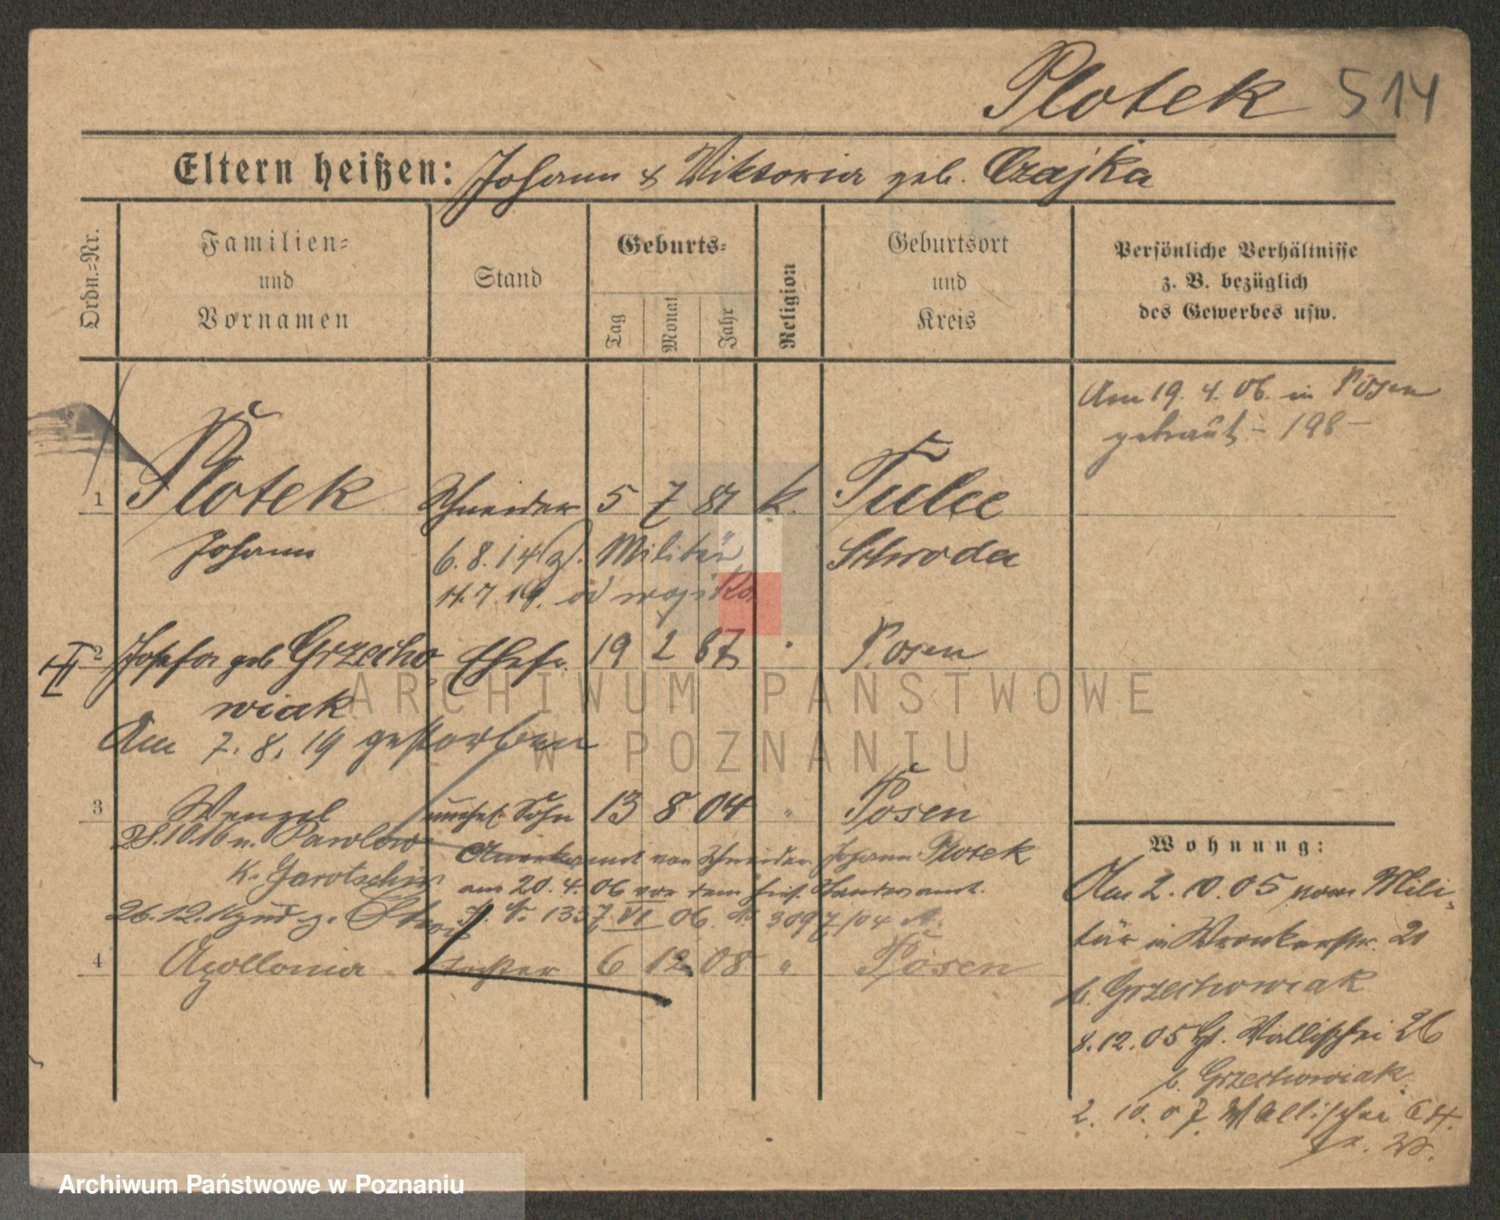 Plotek 514
Eltern heißen: Johann & Viktoria geb. Czajka
Ordn.-Nr.
Familien-
und
Vornamen
Stand
Geburts-
Tag
Monat
Jahr
Religion
Geburtsort
und
Kreis
Persönliche Verhältnisse
z. B. bezüglich
des Gewerbes usw.
Am 19. 4. 06. in Posen
getraut - 198 -
1 Plotek Schneider 5 7 81 k. Tulce
Johann 6. 8. 14 z. Militär Schroda
4. 7. 19. od wojska
II
2 Josefa geb. Grzecho Ehefr. 19 2 87 " Posen
wiak
Am 7. 8. 19 gestorben
3 Wenzel unehel. Sohn 13 8 04 " Posen
28. 10. 16 n. Pawlow
Anerkannt von Schneider Johann Plotek
K. Jarotschin am 20. 4. 06 vor dem hies. Standesamt.
26. 12. z.
1357 VI 06. 3097/04
4 Apollonia Tochter 6 12 08 " Posen
Wohnung:
Am 2. 10. 05 vom Mili-
tär in Wronkerstr. 21
b. Grzechowiak
8. 12. 05 Wallischei 26
b. Grzechowiak
2. 10. 07 Wallischei 64.
ARCHIWUM PAŃSTWOWE
W POZNANIU
Archiwum Państwowe w Poznaniu